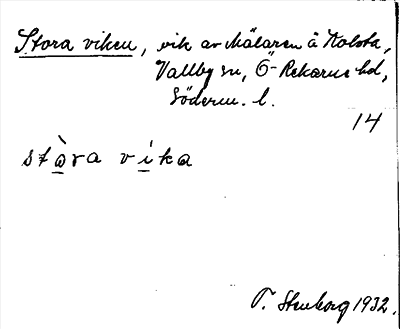 Stora viken, vik av Mälaren å Kolsta,
Vallby sn, Ö-Rekarne hd,
Söderm. l.
14
stàra víka
T. Stenborg 1932.